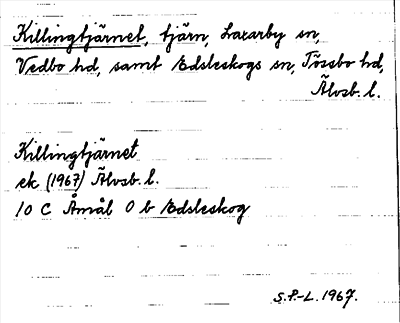 Killingtjärnet, tjärn, Laxarby sn,
Vedbo hd, samt Edsleskogs sn, Tössbo hd,
Älvsb. l.
Killingtjärnet
ek (1967) Älvsb. l.
10 C Åmål 0 b Edsleskog
S.P.-L. 1967.